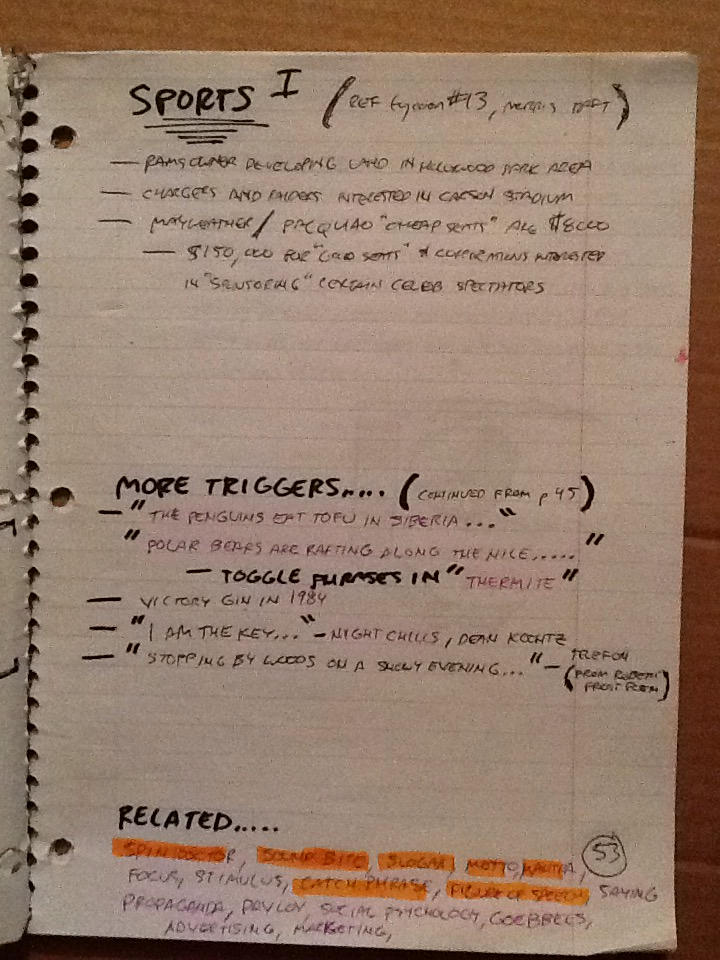 SPORTS I (REF tycoon #13, DRAFT)
— RAMS OWNER DEVELOPING LAND IN HOLLYWOOD PARK AREA
— CHARGERS AND RAIDERS INTERESTED IN CARSON STADIUM
— MAYWEATHER / PACQUAO "CHEAP SEATS" ARE $8000
— $150,000 FOR "GOOD SEATS" & CORPORATIONS INTERESTED
IN "SPONSORING" CERTAIN CELEB SPECTATORS
MORE TRIGGERS.... (CONTINUED FROM p 45)
— "THE PENGUINS EAT TOFU IN SIBERIA..."
"POLAR BEARS ARE RAFTING ALONG THE NILE....."
— TOGGLE PHRASES IN "THERMITE"
— VICTORY GIN IN 1984
— "I AM THE KEY..." – NIGHT CHILLS, DEAN KOONTZ
— "STOPPING BY WOODS ON A SNOWY EVENING..." – TELEFON
(FROM ROBERT
FROST POEM)
RELATED.....
SPIN DOCTOR, SOUND BITE, SLOGAN, MOTTO, MANTRA, 53
FOCUS, STIMULUS, CATCH PHRASE, FIGURE OF SPEECH, SAYING
PROPAGANDA, PAVLOV, SOCIAL PSYCHOLOGY, GOEBBELS,
ADVERTISING, MARKETING,